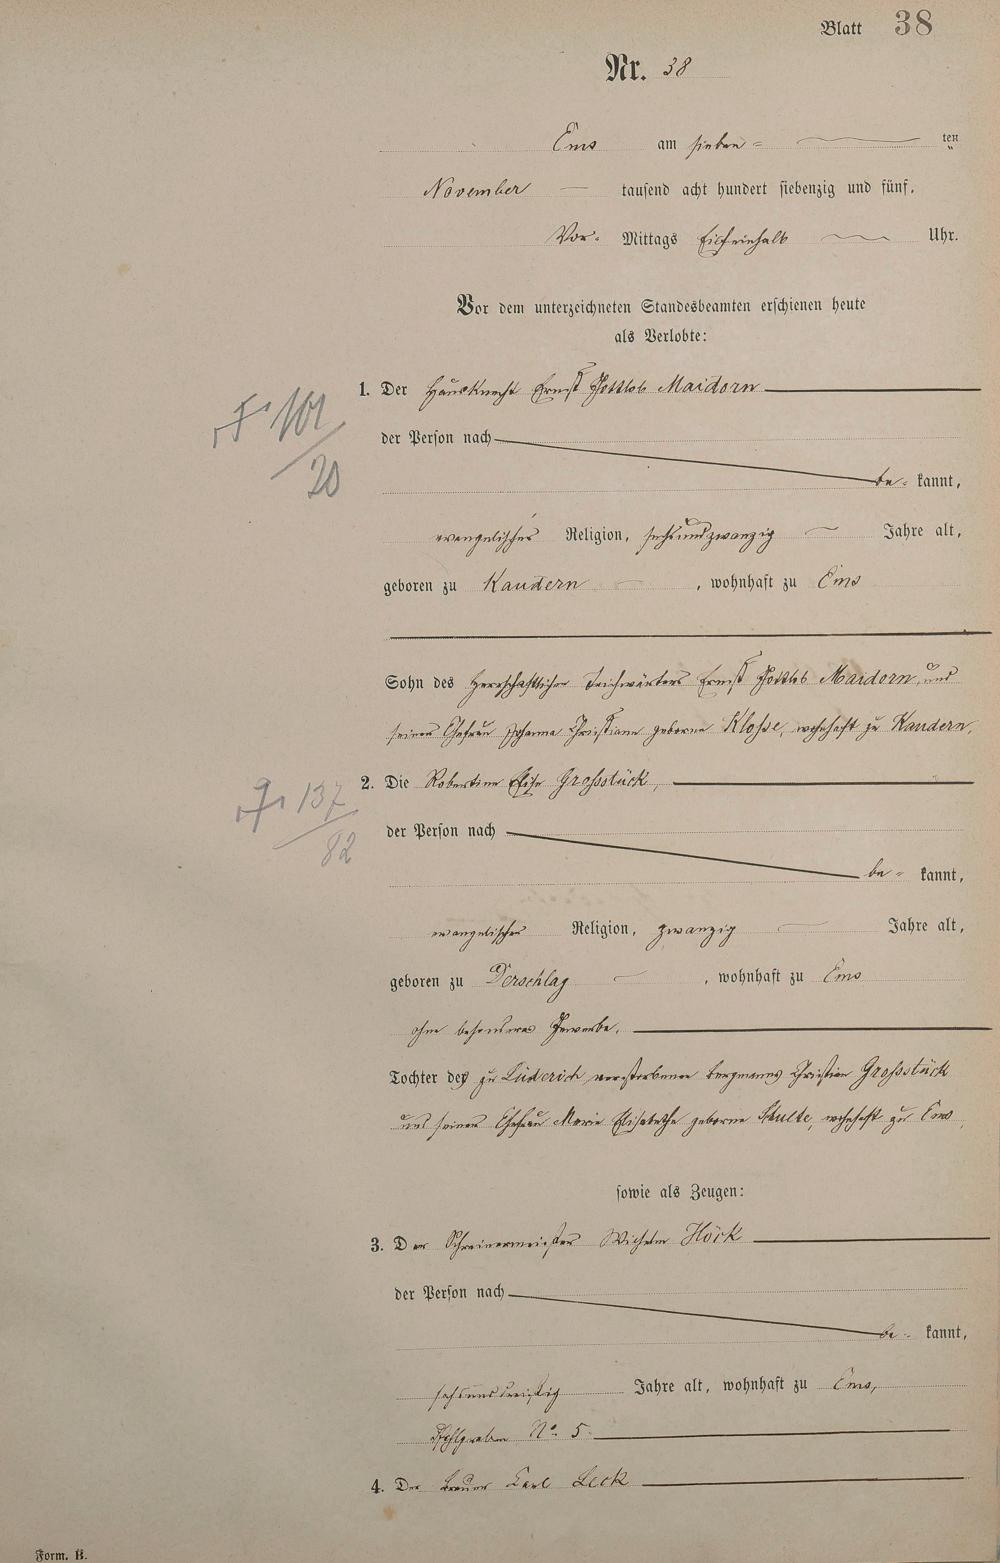 Blatt 38
Nr. 38
Ems am sieben= ten
November tausend acht hundert siebenzig und fünf,
Vor= Mittags Eilfeinhalb Uhr.
Vor dem unterzeichneten Standesbeamten erschienen heute
als Verlobte:
1. Der Hausknecht Ernst Gottlob Maidorn
F 101
der Person nach
20
be= kannt,
evangelischer Religion, sechsundzwanzig Jahre alt,
geboren zu Kaudern, wohnhaft zu Ems
Sohn des herrschaftlichen Teichwärters Ernst Gottlob Maidorn, und
seiner Ehefrau Johanna Christiane geborne Klosse, wohnhaft zu Kaudern,
2. Die Robertine Elise Grossstück,
137
der Person nach
82
be= kannt,
evangelischer Religion, zwanzig Jahre alt,
geboren zu Derschlag, wohnhaft zu Ems
ohne besonderes Gewerbe,
Tochter des zu Lüderich verstorbenen Bergmanns Christian Grossstück
und seiner Ehefrau Marie Elisabethe geborne Schulte, wohnhaft zu Ems,
sowie als Zeugen:
3. Der Schreinermeister Wilhelm Höck
der Person nach
be= kannt,
sechsunddreißig Jahre alt, wohnhaft zu Ems,
Pfahlgraben No. 5.
4. Der Brauer Carl Leck
Form. B.